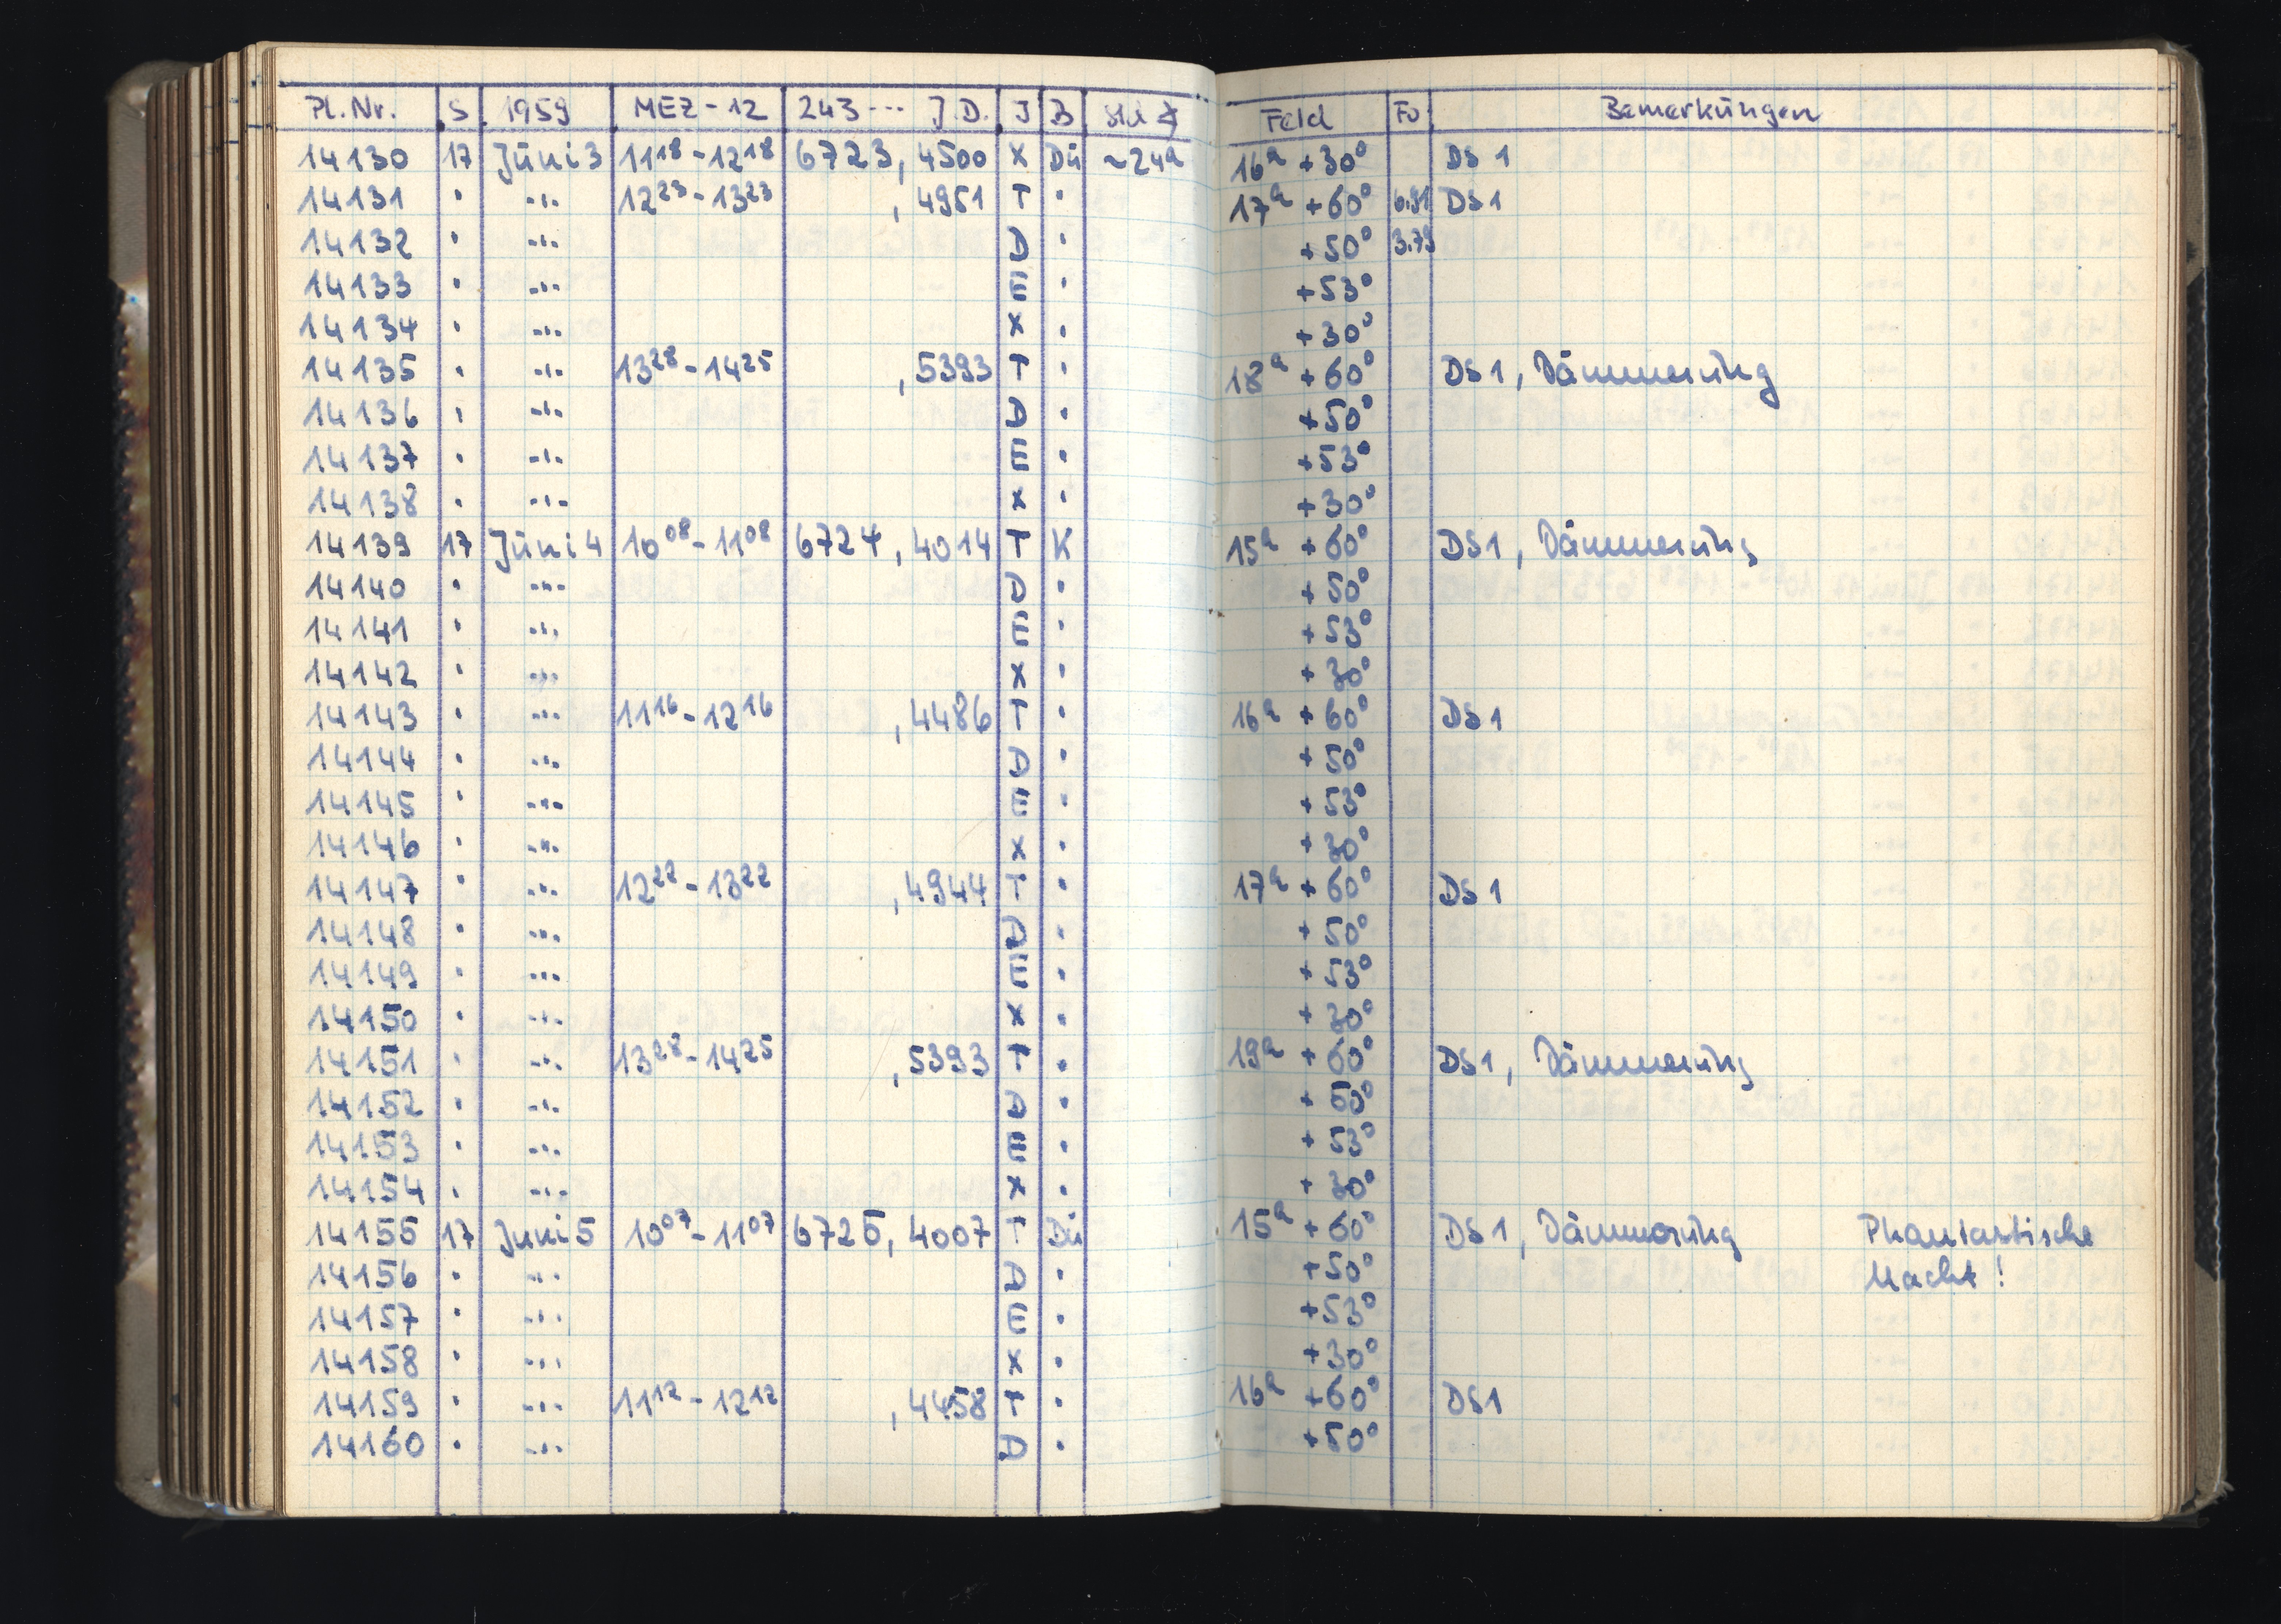 Pl.Nr. S 1959 MEZ-12 243--- J.D. J B Std ∢ Feld Fo Bemerkungen
14130 17 Jüni 3 11¹⁸-12¹⁸ 6723,4500 X Dü ~24ᵃ 16ᵃ +30° DS 1
14131 " -"- 12²³-13²³ ,4951 T " 17ᵃ +60° 6.91 DS 1
14132 " -"- D " +50° 3.79
14133 " -"- E " +53°
14134 " -"- X " +30°
14135 " -"- 13²⁸-14²⁵ ,5393 T " 18ᵃ +60° DS 1, Dämmerüng
14136 " -"- D " +50°
14137 " -"- E " +53°
14138 " -"- X " +30°
14139 17 Jüni 4 10⁰⁸-11⁰⁸ 6724,4014 T K 15ᵃ +60° DS 1, Dämmerüng
14140 " -"- D " +50°
14141 " -"- E " +53°
14142 " -"- X " +30°
14143 " -"- 11¹⁶-12¹⁶ ,4486 T " 16ᵃ +60° DS 1
14144 " -"- D " +50°
14145 " -"- E " +53°
14146 " -"- X " +30°
14147 " -"- 12²²-13²² ,4944 T " 17ᵃ +60° DS 1
14148 " -"- D " +50°
14149 " -"- E " +53°
14150 " -"- X " +30°
14151 " -"- 13²⁸-14²⁵ ,5393 T " 19ᵃ +60° DS 1, Dämmerüng
14152 " -"- D " +50°
14153 " -"- E " +53°
14154 " -"- X " +30°
14155 17 Juni 5 10⁰⁷-11⁰⁷ 6725,4007 T Dü 15ᵃ +60° DS 1, Dämmerüng Phantastische
14156 " -"- D " +50° Nacht!
14157 " -"- E " +53°
14158 " -"- X " +30°
14159 " -"- 11¹²-12¹² ,4458 T " 16ᵃ +60° DS 1
14160 " -"- D " +50°